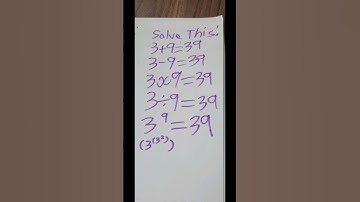 Solve This:
3+9=39
3-9=39
3x9=39
3÷9=39
3⁹=39
(3^(3²))